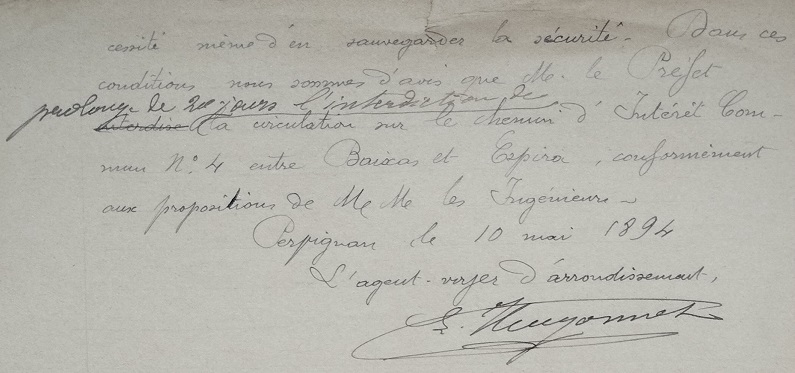 cessité même d'en sauvegarder la sécurité. Dans ces
conditions nous sommes d'avis que M. le Préfet
prolonge de 20 jours l'interdiction de
interdise la circulation sur le chemin d'Intérêt Com-
mun N° 4 entre Baixas et Espira, conformément
aux propositions de MM les Ingénieurs.
Perpignan le 10 mai 1894
L'agent-voyer d'arrondissement,